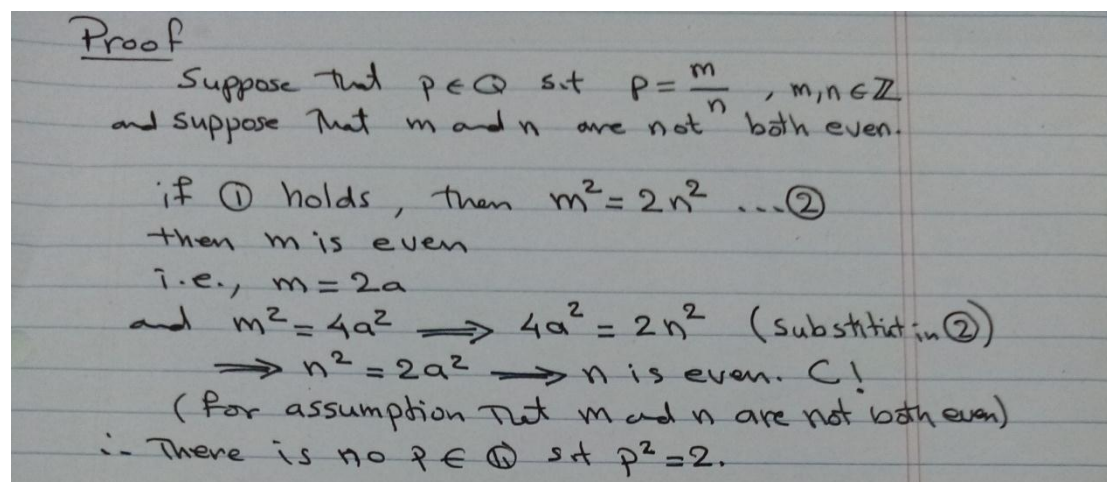 Proof
Suppose that p ∈ ℚ s.t p = m/n , m,n ∈ ℤ
and suppose that m and n are not both even.
if ① holds, then m² = 2n² ...②
then m is even
i.e., m = 2a
and m² = 4a² ⟹ 4a² = 2n² (substitut in ②)
⟹ n² = 2a² ⟶ n is even. C!
(for assumption that m and n are not both even)
∴ There is no p ∈ ℚ s.t p² = 2.